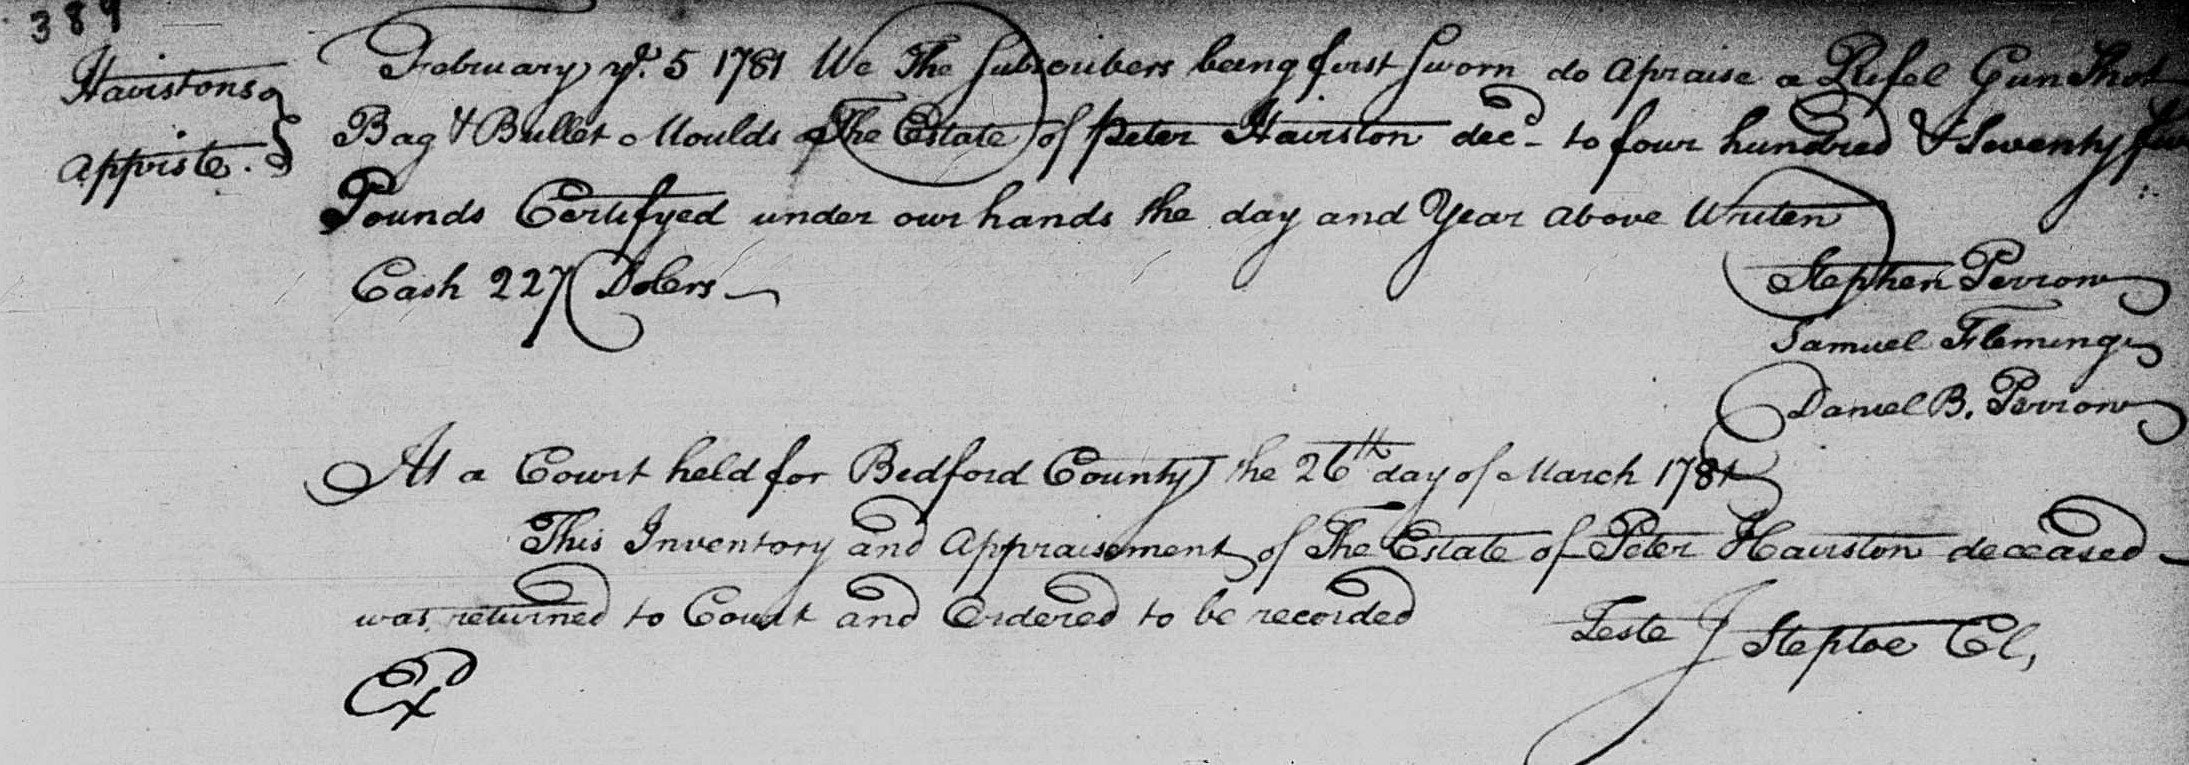 389
Hairstons
Appriste.
February ye. 5 1781 We The Subscribers being first Sworn do Apraise a Rifel Gun Shot
Bag & Bullet Moulds of The Estate of Peter Hairston decd to four hundred & Seventy five
Pounds Certifyed under our hands the day and Year above Writen
Cash 227 Dolers
Stephen Perrow
Samuel Fleming
Daniel B. Perrow
At a Court held for Bedford County the 26th day of March 1781
This Inventory and Appraisement of The Estate of Peter Hairston deceased
was returned to Court and Ordered to be recorded
Teste J Steptoe Cl,
Ex